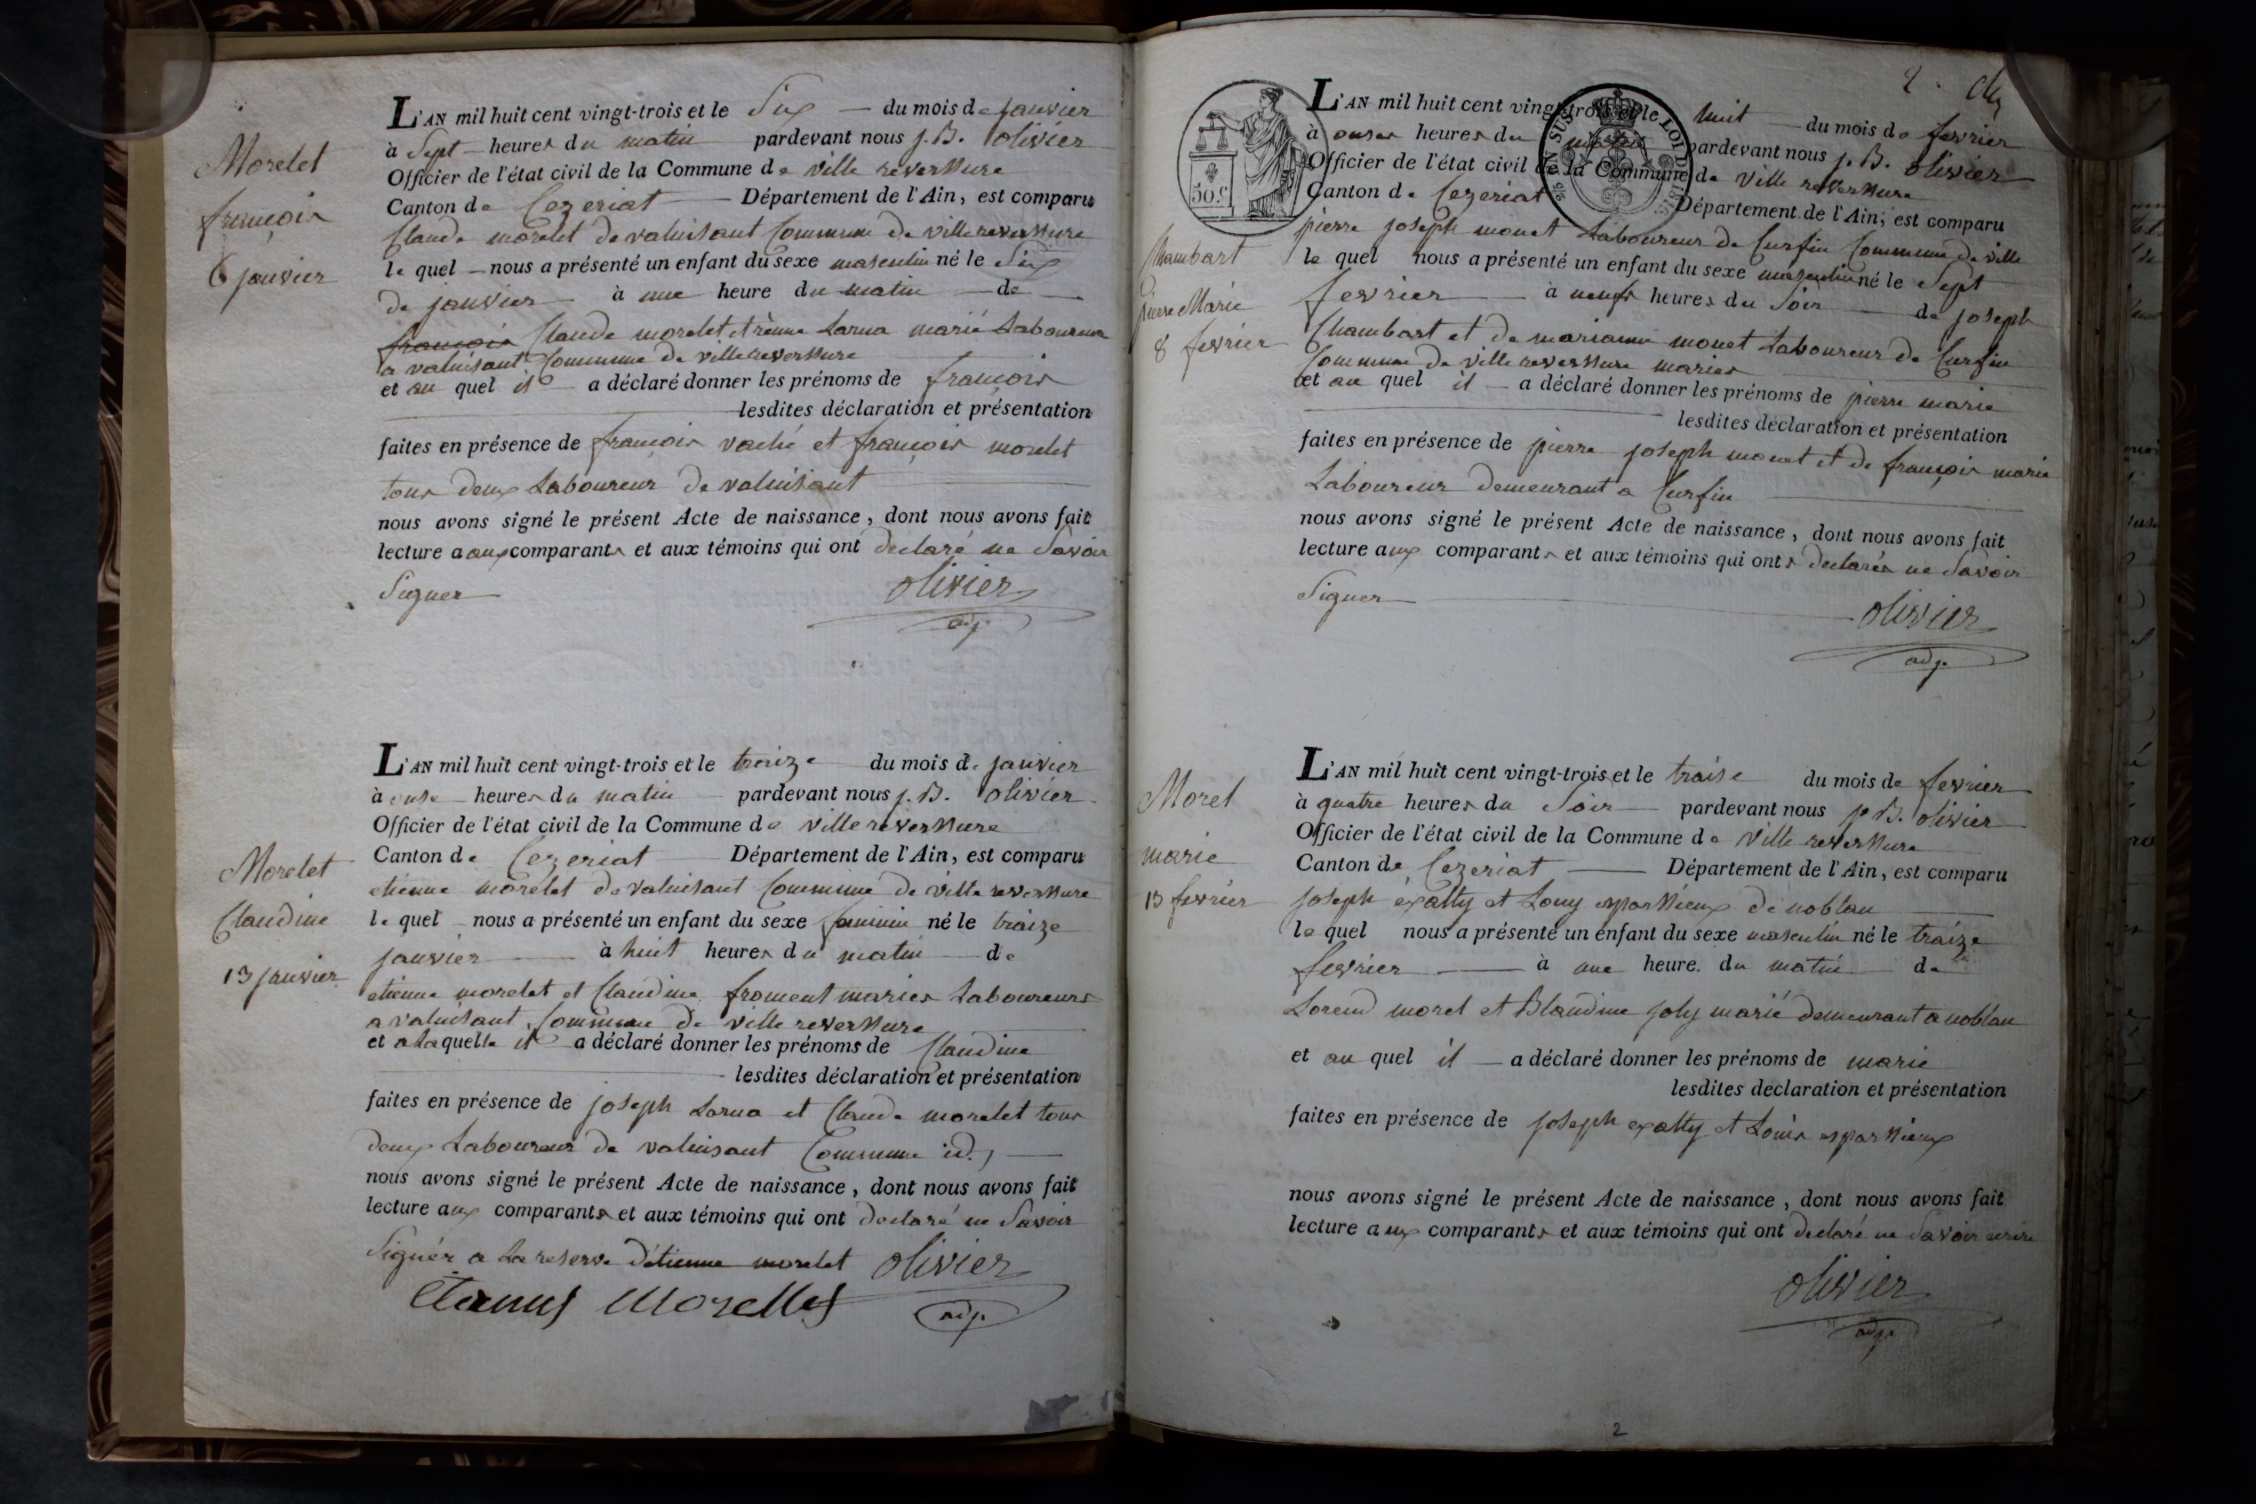 Morelet
françois
6 janvier
L'AN mil huit cent vingt-trois et le Six du mois de janvier
à Sept heures du matin pardevant nous j. B. olivier
Officier de l'état civil de la Commune de ville reversure
Canton de Cezeriat Département de l'Ain, est comparu
Claude morelet de valuisant Commune de ville reversure
le quel nous a présenté un enfant du sexe masculin né le Six
de janvier à une heure du matin de
françois Claude morelet et Larua marié Laboureur
a valuisant Commune de ville reversure
et au quel il a déclaré donner les prénoms de françois
lesdites déclaration et présentation
faites en présence de françois vaché et françois morelet
tous deux Laboureur de valuisant
nous avons signé le présent Acte de naissance, dont nous avons fait
lecture a aux comparants et aux témoins qui ont declaré ne Savoir
Signer olivier
adj.
Morelet
Claudine
13 janvier
L'AN mil huit cent vingt-trois et le treize du mois de janvier
à onse heures du matin pardevant nous j. B. olivier
Officier de l'état civil de la Commune de ville reversure
Canton de Cezeriat Département de l'Ain, est comparu
etienne morelet de valuisant Commune de ville reversure
le quel nous a présenté un enfant du sexe feminin né le traize
janvier à huit heures du matin de
etienne morelet et Claudine froment maries Laboureurs
a valuisant Commune de ville reversure
et a laquelle il a déclaré donner les prénoms de Claudine
lesdites déclaration et présentation
faites en présence de joseph Larua et Claude morelet tous
deux Laboureur de valuisant Commune id.
nous avons signé le présent Acte de naissance, dont nous avons fait
lecture aux comparants et aux témoins qui ont declaré ne Savoir
Signér a La reserve d'étienne morelet olivier
adj.
2
50 c
Chambart
pierre Marie
8 fevrier
L'AN mil huit cent vingt-trois et le huit du mois de fevrier
à onses heures du matin pardevant nous j. B. olivier
Officier de l'état civil de la Commune de ville reversure
Canton de Cezeriat Département de l'Ain, est comparu
pierre joseph monet Laboureur de Curfin Commune de ville
le quel nous a présenté un enfant du sexe masculin né le Sept
fevrier à neufs heures du Soir de joseph
Chambart et de marianne monet Laboureur de Curfin
Commune de ville reversure maries
et au quel il a déclaré donner les prénoms de pierre marie
lesdites déclaration et présentation
faites en présence de pierre joseph monet et de françois marie
Laboureur demeurant a Curfin
nous avons signé le présent Acte de naissance, dont nous avons fait
lecture aux comparants et aux témoins qui onts declarés ne Savoir
Signer
olivier
adj.
Morel
marie
13 fevrier
L'AN mil huit cent vingt-trois et le traise du mois de fevrier
à quatre heures du Soir pardevant nous j. B. olivier
Officier de l'état civil de la Commune de ville reversure
Canton de Cezeriat Département de l'Ain, est comparu
joseph exatty et Louy de noblan
le quel nous a présenté un enfant du sexe masculin né le traize
fevrier à une heure du matin de
morel et Blandine joly marié demeurant a noblan
et au quel il a déclaré donner les prénoms de marie
lesdites declaration et présentation
faites en présence de joseph exatty et Louis
nous avons signé le présent Acte de naissance, dont nous avons fait
lecture aux comparants et aux témoins qui ont declaré ne Savoir ecrire
olivier
adj.
2